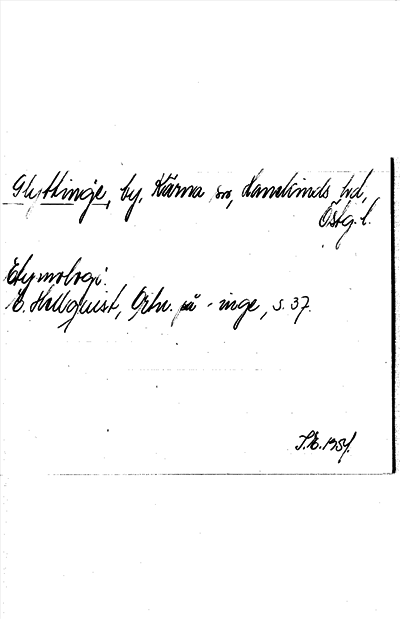 Glyttinge, by, Kärna sn, Hanekinds hd,
Östg. l.
Etymologi:
E. Hellquist, Ortn. på -inge, s. 37.